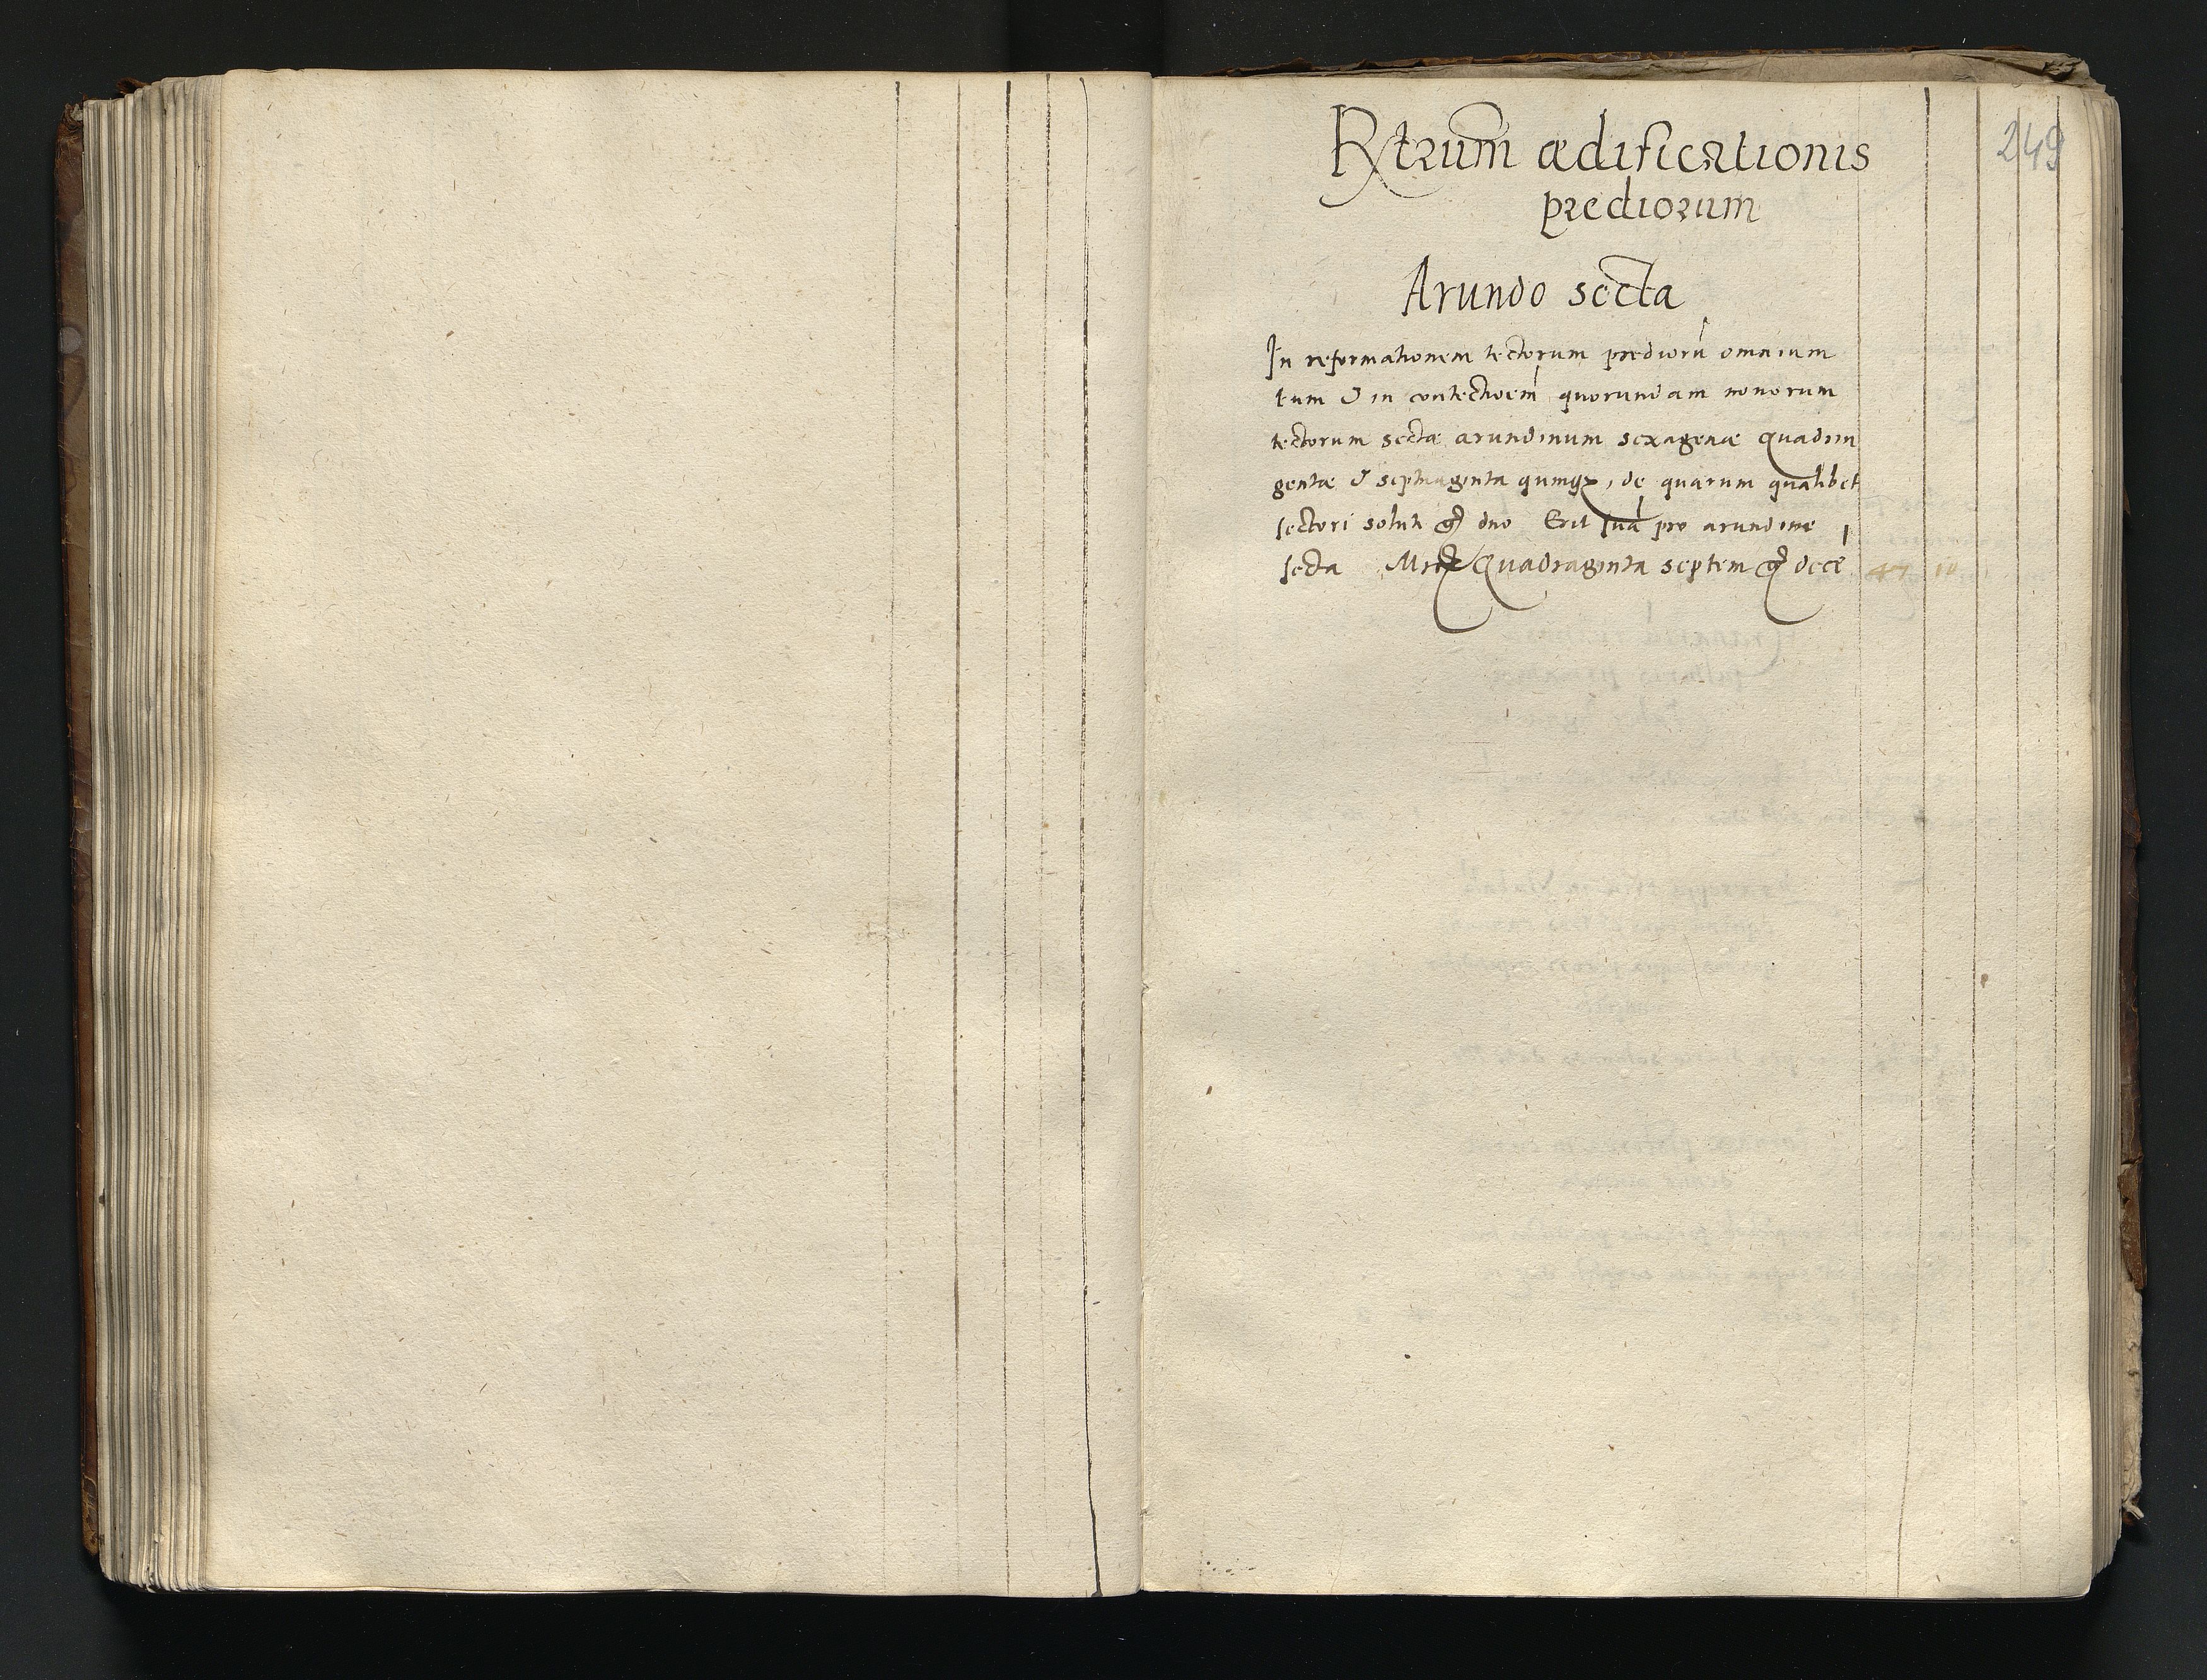 249
Rxtrum̄ ædificationis
prediorum
Arundo secta
In reformationem tectorum prædiorū omnium
tum & in contectioem̄ quorundam nouorum
tectorum sectæ arundinum sexagenæ quadrin
gentæ & septuaginta quinqꝫ, de quarum qualibet
sectori soluti g duo Erit sūa pro arundine
secta Mrc Quadraginta septem g decē 47 10